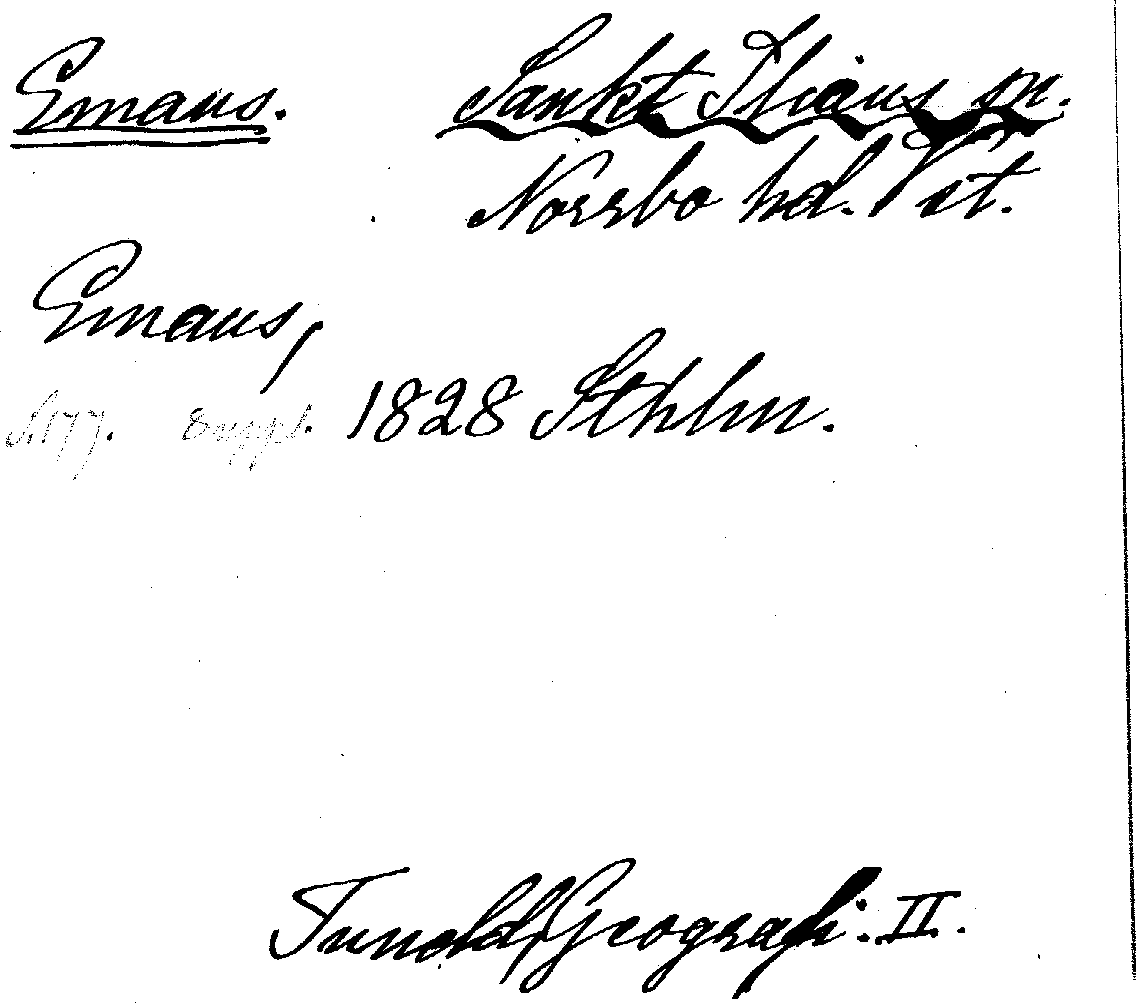 Emaus. Sankt Ilians sn.
Norrbo hd. Vst.
Emaus,
S. 177. Suppl. 1828 Sthlm.
Tuneld, Geografi. II.